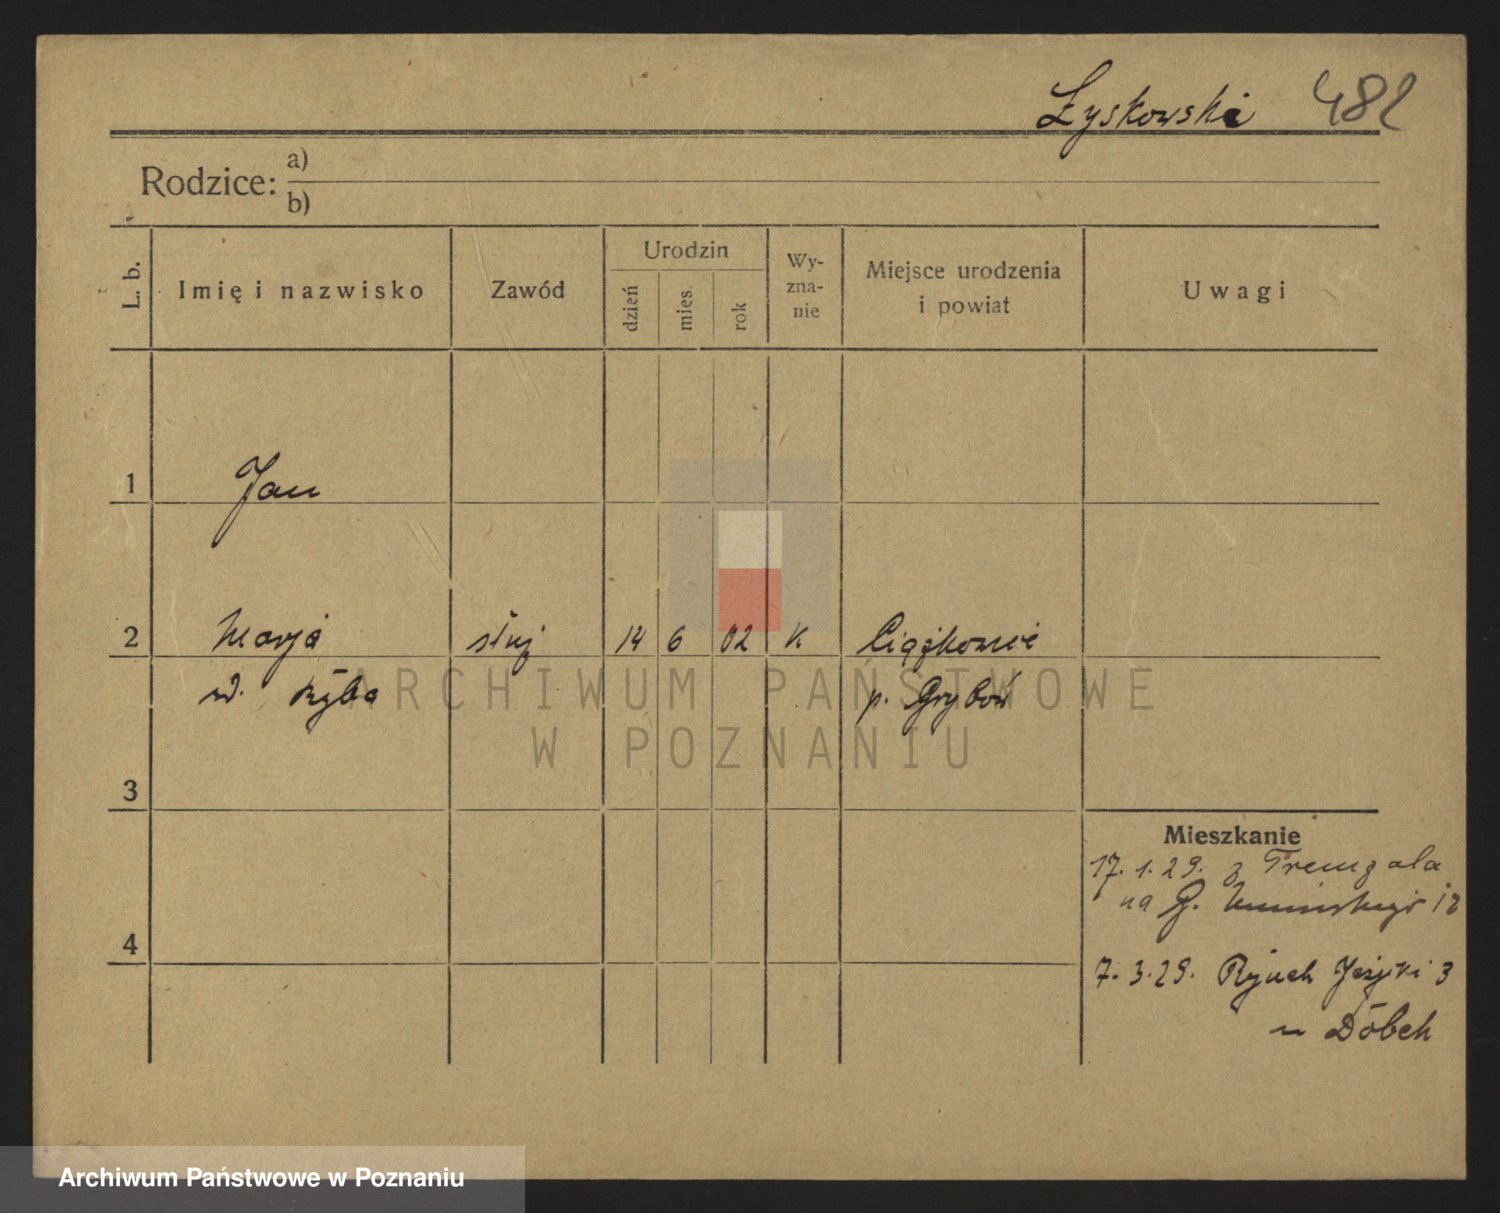 Łyskowski 482
Rodzice:
a)
b)
L. b.
Imię i nazwisko
Zawód
Urodzin
dzień
mies.
rok
Wy-
zna-
nie
Miejsce urodzenia
i powiat
Uwagi
1 Jan
2 Marja służ 14 6 02 K Ciężkowie
Ryba p. Grybów
3
4
Mieszkanie
17. 1. 29. z
na G. 12
7. 3. 29. Rynek 3
ARCHIWUM PAŃSTWOWE
W POZNANIU
Archiwum Państwowe w Poznaniu